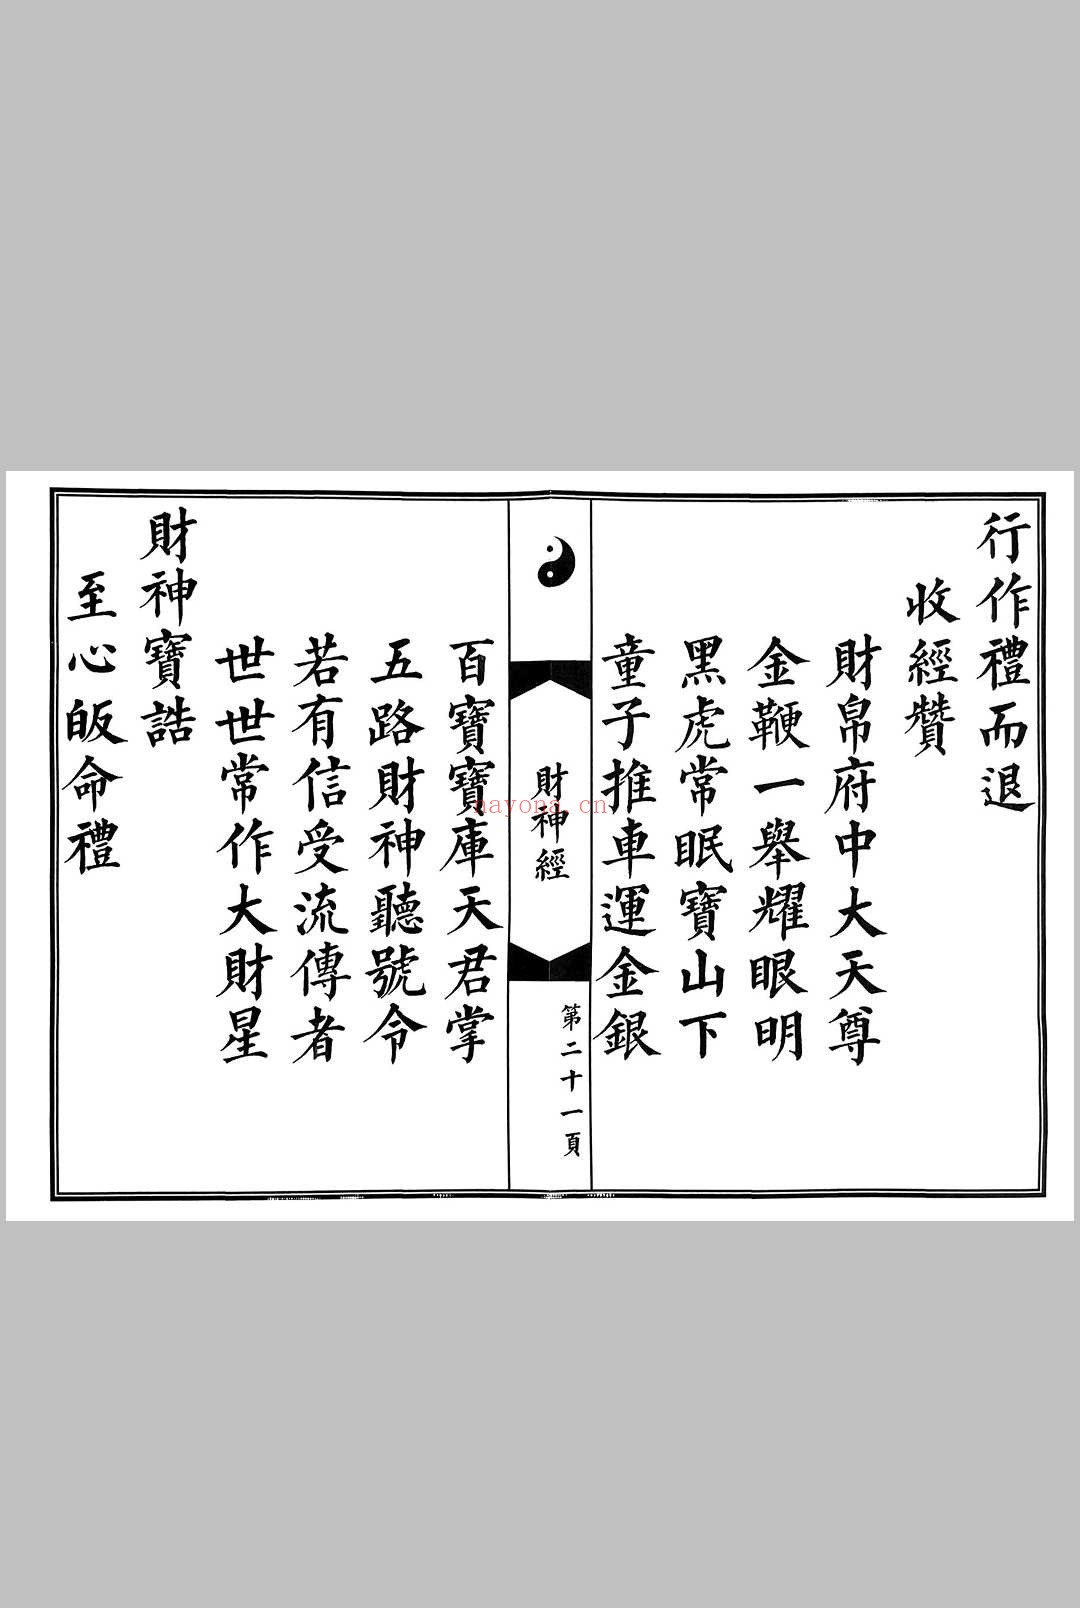 行作禮而退
收經贊
財帛府中大天尊
金鞭一舉耀眼明
黑虎常眠寶山下
童子推車運金銀
財神經
第二十一頁
百寶寶庫天君掌
五路財神聽號令
若有信受流傳者
世世常作大財星
財神寶誥
至心皈命禮
nayona.cn